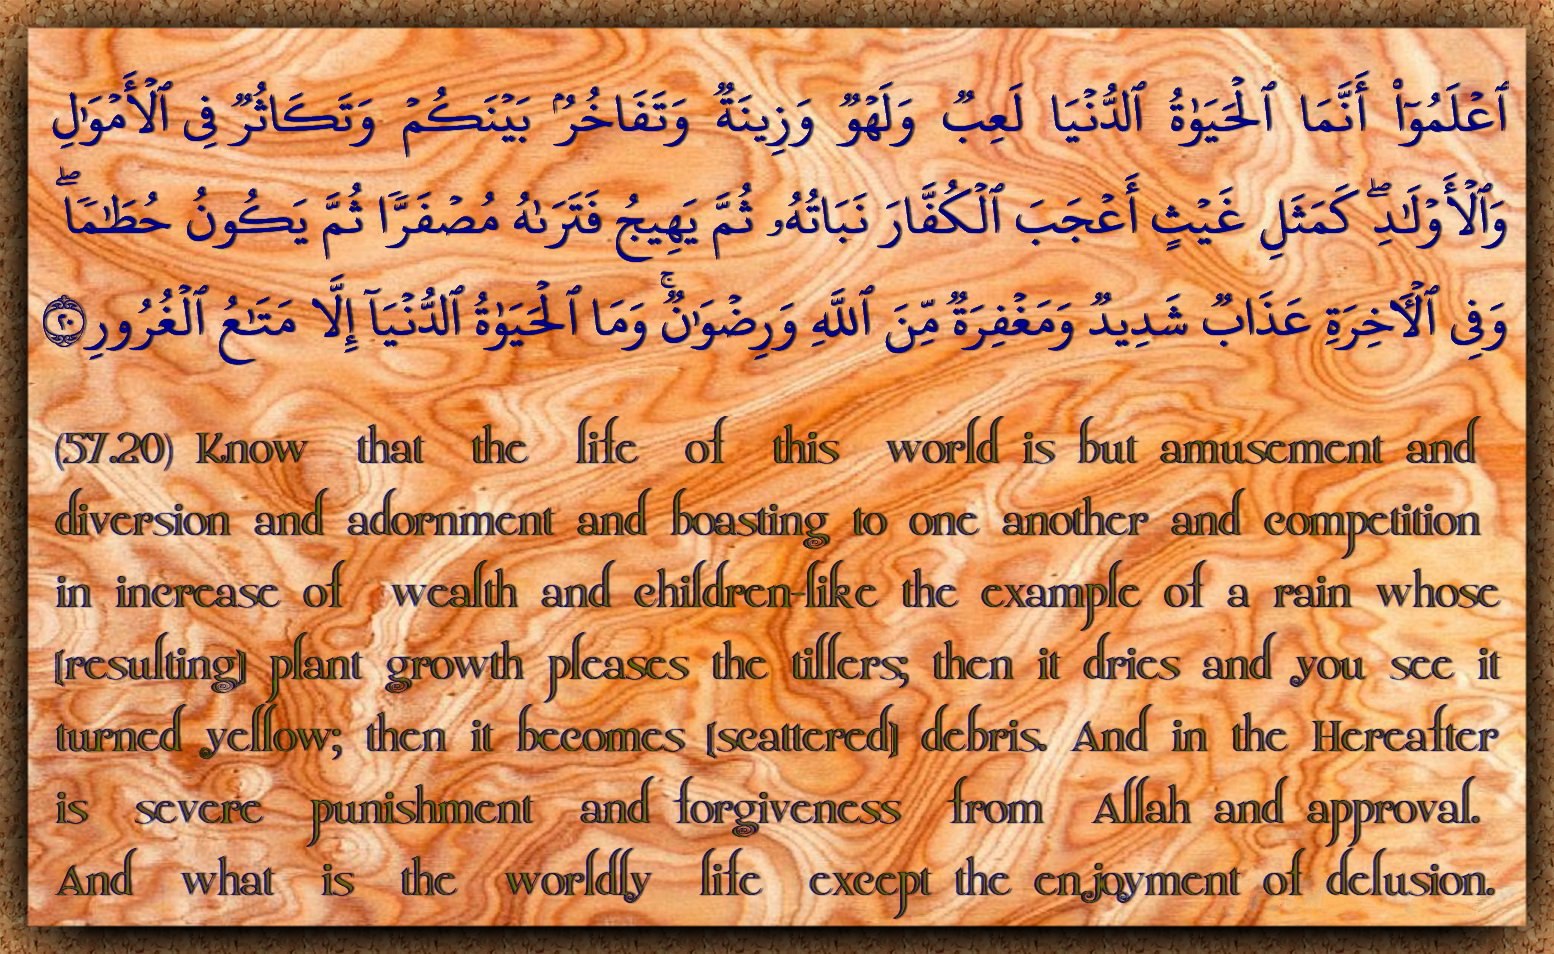 ٱعۡلَمُوٓاْ أَنَّمَا ٱلۡحَيَوٰةُ ٱلدُّنۡيَا لَعِبٞ وَلَهۡوٞ وَزِينَةٞ وَتَفَاخُرُۢ بَيۡنَكُمۡ وَتَكَاثُرٞ فِي ٱلۡأَمۡوَٰلِ
وَٱلۡأَوۡلَٰدِۖ كَمَثَلِ غَيۡثٍ أَعۡجَبَ ٱلۡكُفَّارَ نَبَاتُهُۥ ثُمَّ يَهِيجُ فَتَرَىٰهُ مُصۡفَرّٗا ثُمَّ يَكُونُ حُطَٰمٗاۖ
وَفِي ٱلۡأٓخِرَةِ عَذَابٞ شَدِيدٞ وَمَغۡفِرَةٞ مِّنَ ٱللَّهِ وَرِضۡوَٰنٞۚ وَمَا ٱلۡحَيَوٰةُ ٱلدُّنۡيَآ إِلَّا مَتَٰعُ ٱلۡغُرُورِ ٢٠
(57.20) Know that the life of this world is but amusement and
diversion and adornment and boasting to one another and competition
in increase of wealth and children-like the example of a rain whose
[resulting] plant growth pleases the tillers; then it dries and you see it
turned yellow; then it becomes [scattered] debris. And in the Hereafter
is severe punishment and forgiveness from Allah and approval.
And what is the worldly life except the enjoyment of delusion.